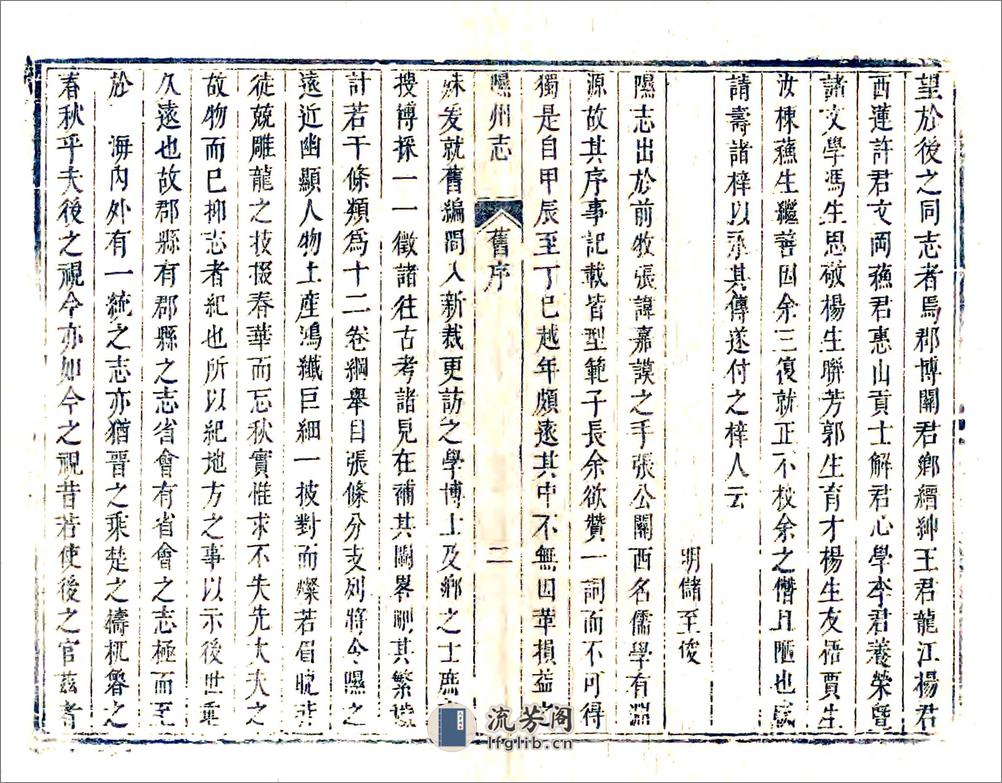 望於後之同志者焉郡博關君鄉縉紳王君龍江楊君
西蓮許君文岡蘓君惠山貢士解君心學李君養榮暨
諸文學馮生思敬楊生聯芳郭生育才楊生友梧賈生
汝棟蘓生繼善因余三復就正不校余之僭且陋也咸
請壽諸梓以承其傳遂付之梓人云
明儲至俊
隰志出於前牧張諱嘉謨之手張公關西名儒學有淵
源故其序事記載皆型範子長余欲贊一詞而不可得
獨是自甲辰至丁巳越年頗遠其中不無因革損益之
隰州志
舊序
二
殊爰就舊編間入新裁更訪之學博士及鄉之士庶
搜博採一一徵諸往古考諸見在補其闕畧刪其繁
計若干條類為十二卷綱舉目張條分支列將令隰之
遠近幽顯人物土產鴻纖巨細一披對而燦若眉睫非
徒競雕龍之技掇春華而忘秋實惟求不失先大夫之
故物而已抑志者紀也所以紀地方之事以示後世垂
久遠也故郡縣有郡縣之志省會有省會之志極而至
於 海內外有一統之志亦猶晉之乘楚之檮杌魯之
春秋乎夫後之視今亦如今之視昔若使後之官茲者
流芳阁
lfglib.cn